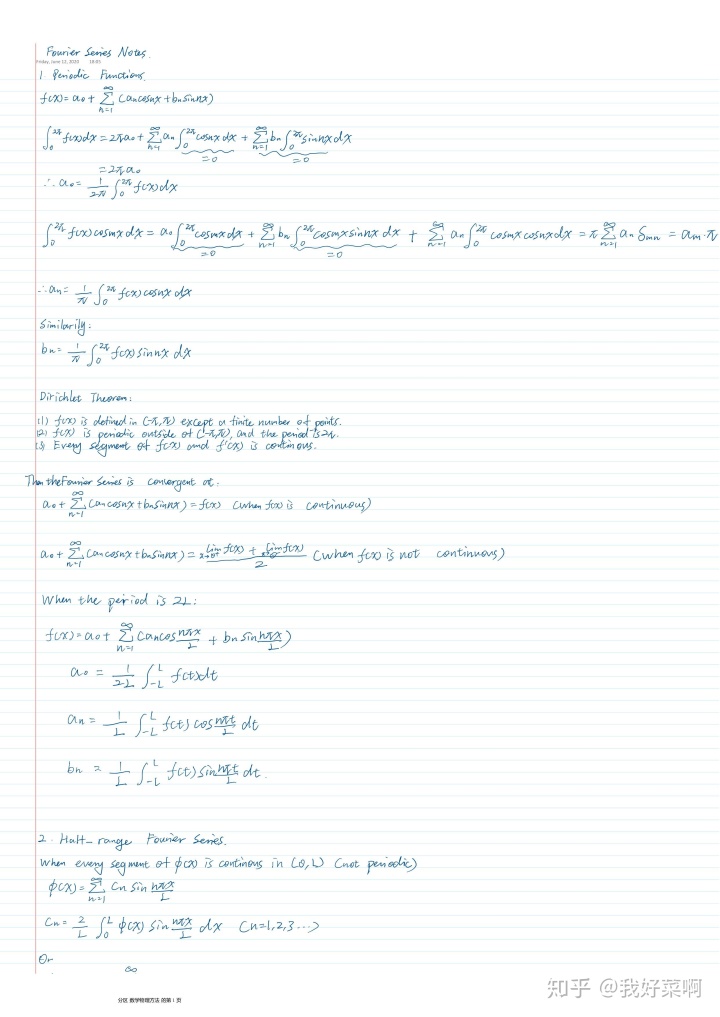 Fourier Series Notes.
Friday, June 12, 2020 18:05
1. Periodic Functions.
f(x) = a₀ + ∑_{n=1}^{∞} (aₙcosnx + bₙsinnx)
∫₀^{2π} f(x)dx = 2πa₀ + ∑_{n=1}^{∞} aₙ ∫₀^{2π} cosnx dx + ∑_{n=1}^{∞} bₙ ∫₀^{2π} sinnx dx
=0 =0
= 2πa₀
∴ a₀ = 1/2π ∫₀^{2π} f(x)dx
∫₀^{2π} f(x)cosmx dx = a₀ ∫₀^{2π} cosmx dx + ∑_{n=1}^{∞} bₙ ∫₀^{2π} cosmx sinnx dx + ∑_{n=1}^{∞} aₙ ∫₀^{2π} cosmx cosnx dx = π ∑_{n=1}^{∞} aₙ δₘₙ = aₘ·π
=0 =0
∴ aₙ = 1/π ∫₀^{2π} f(x) cosnx dx
Similarily:
bₙ = 1/π ∫₀^{2π} f(x) sinnx dx
Dirichlet Theorem:
(1) f(x) is defined in (-π,π) except a finite number of points.
(2) f(x) is periodic outside of (-π,π), and the period is 2π.
(3) Every segment of f(x) and f'(x) is continous.
Then the Fourier Series is convergent at:
a₀ + ∑_{n=1}^{∞} (aₙcosnx + bₙsinnx) = f(x) (when f(x) is continuous)
a₀ + ∑_{n=1}^{∞} (aₙcosnx + bₙsinnx) = (lim f(x) + lim f(x))/2 (when f(x) is not continuous)
When the period is 2L:
f(x) = a₀ + ∑_{n=1}^{∞} (aₙcos nπx/L + bₙ sin nπx/L)
a₀ = 1/2L ∫_{-L}^{L} f(t)dt
aₙ = 1/L ∫_{-L}^{L} f(t) cos nπt/L dt
bₙ = 1/L ∫_{-L}^{L} f(t) sin nπt/L dt.
2. Half-range Fourier Series.
When every segment of φ(x) is continous in (0, L) (not periodic)
φ(x) = ∑_{n=1}^{∞} Cₙ sin nπx/L
Cₙ = 2/L ∫₀^{L} φ(x) sin nπx/L dx (n=1,2,3...)
Or
∞
分区 数学物理方法 的第 1 页
知乎 @我好菜啊